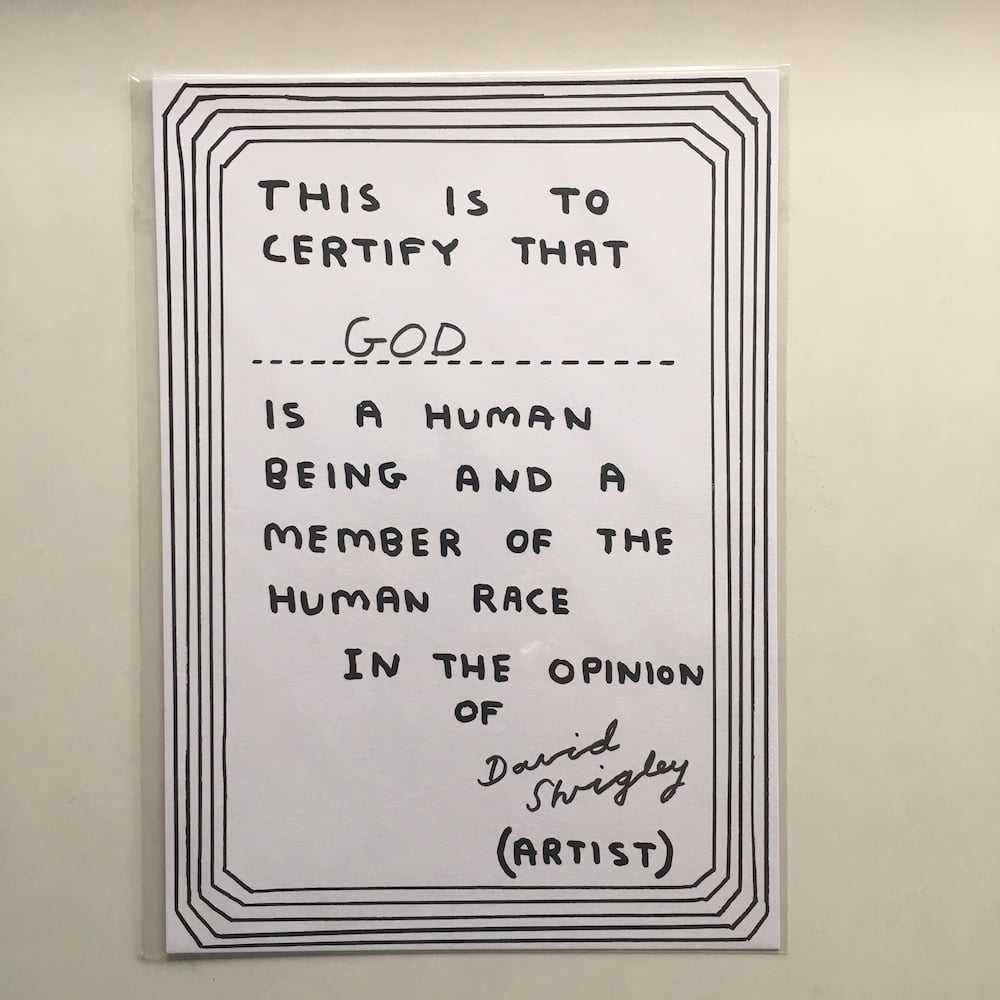 THIS IS TO
CERTIFY THAT
GOD
IS A HUMAN
BEING AND A
MEMBER OF THE
HUMAN RACE
IN THE OPINION
OF
David
Shrigley
(ARTIST)